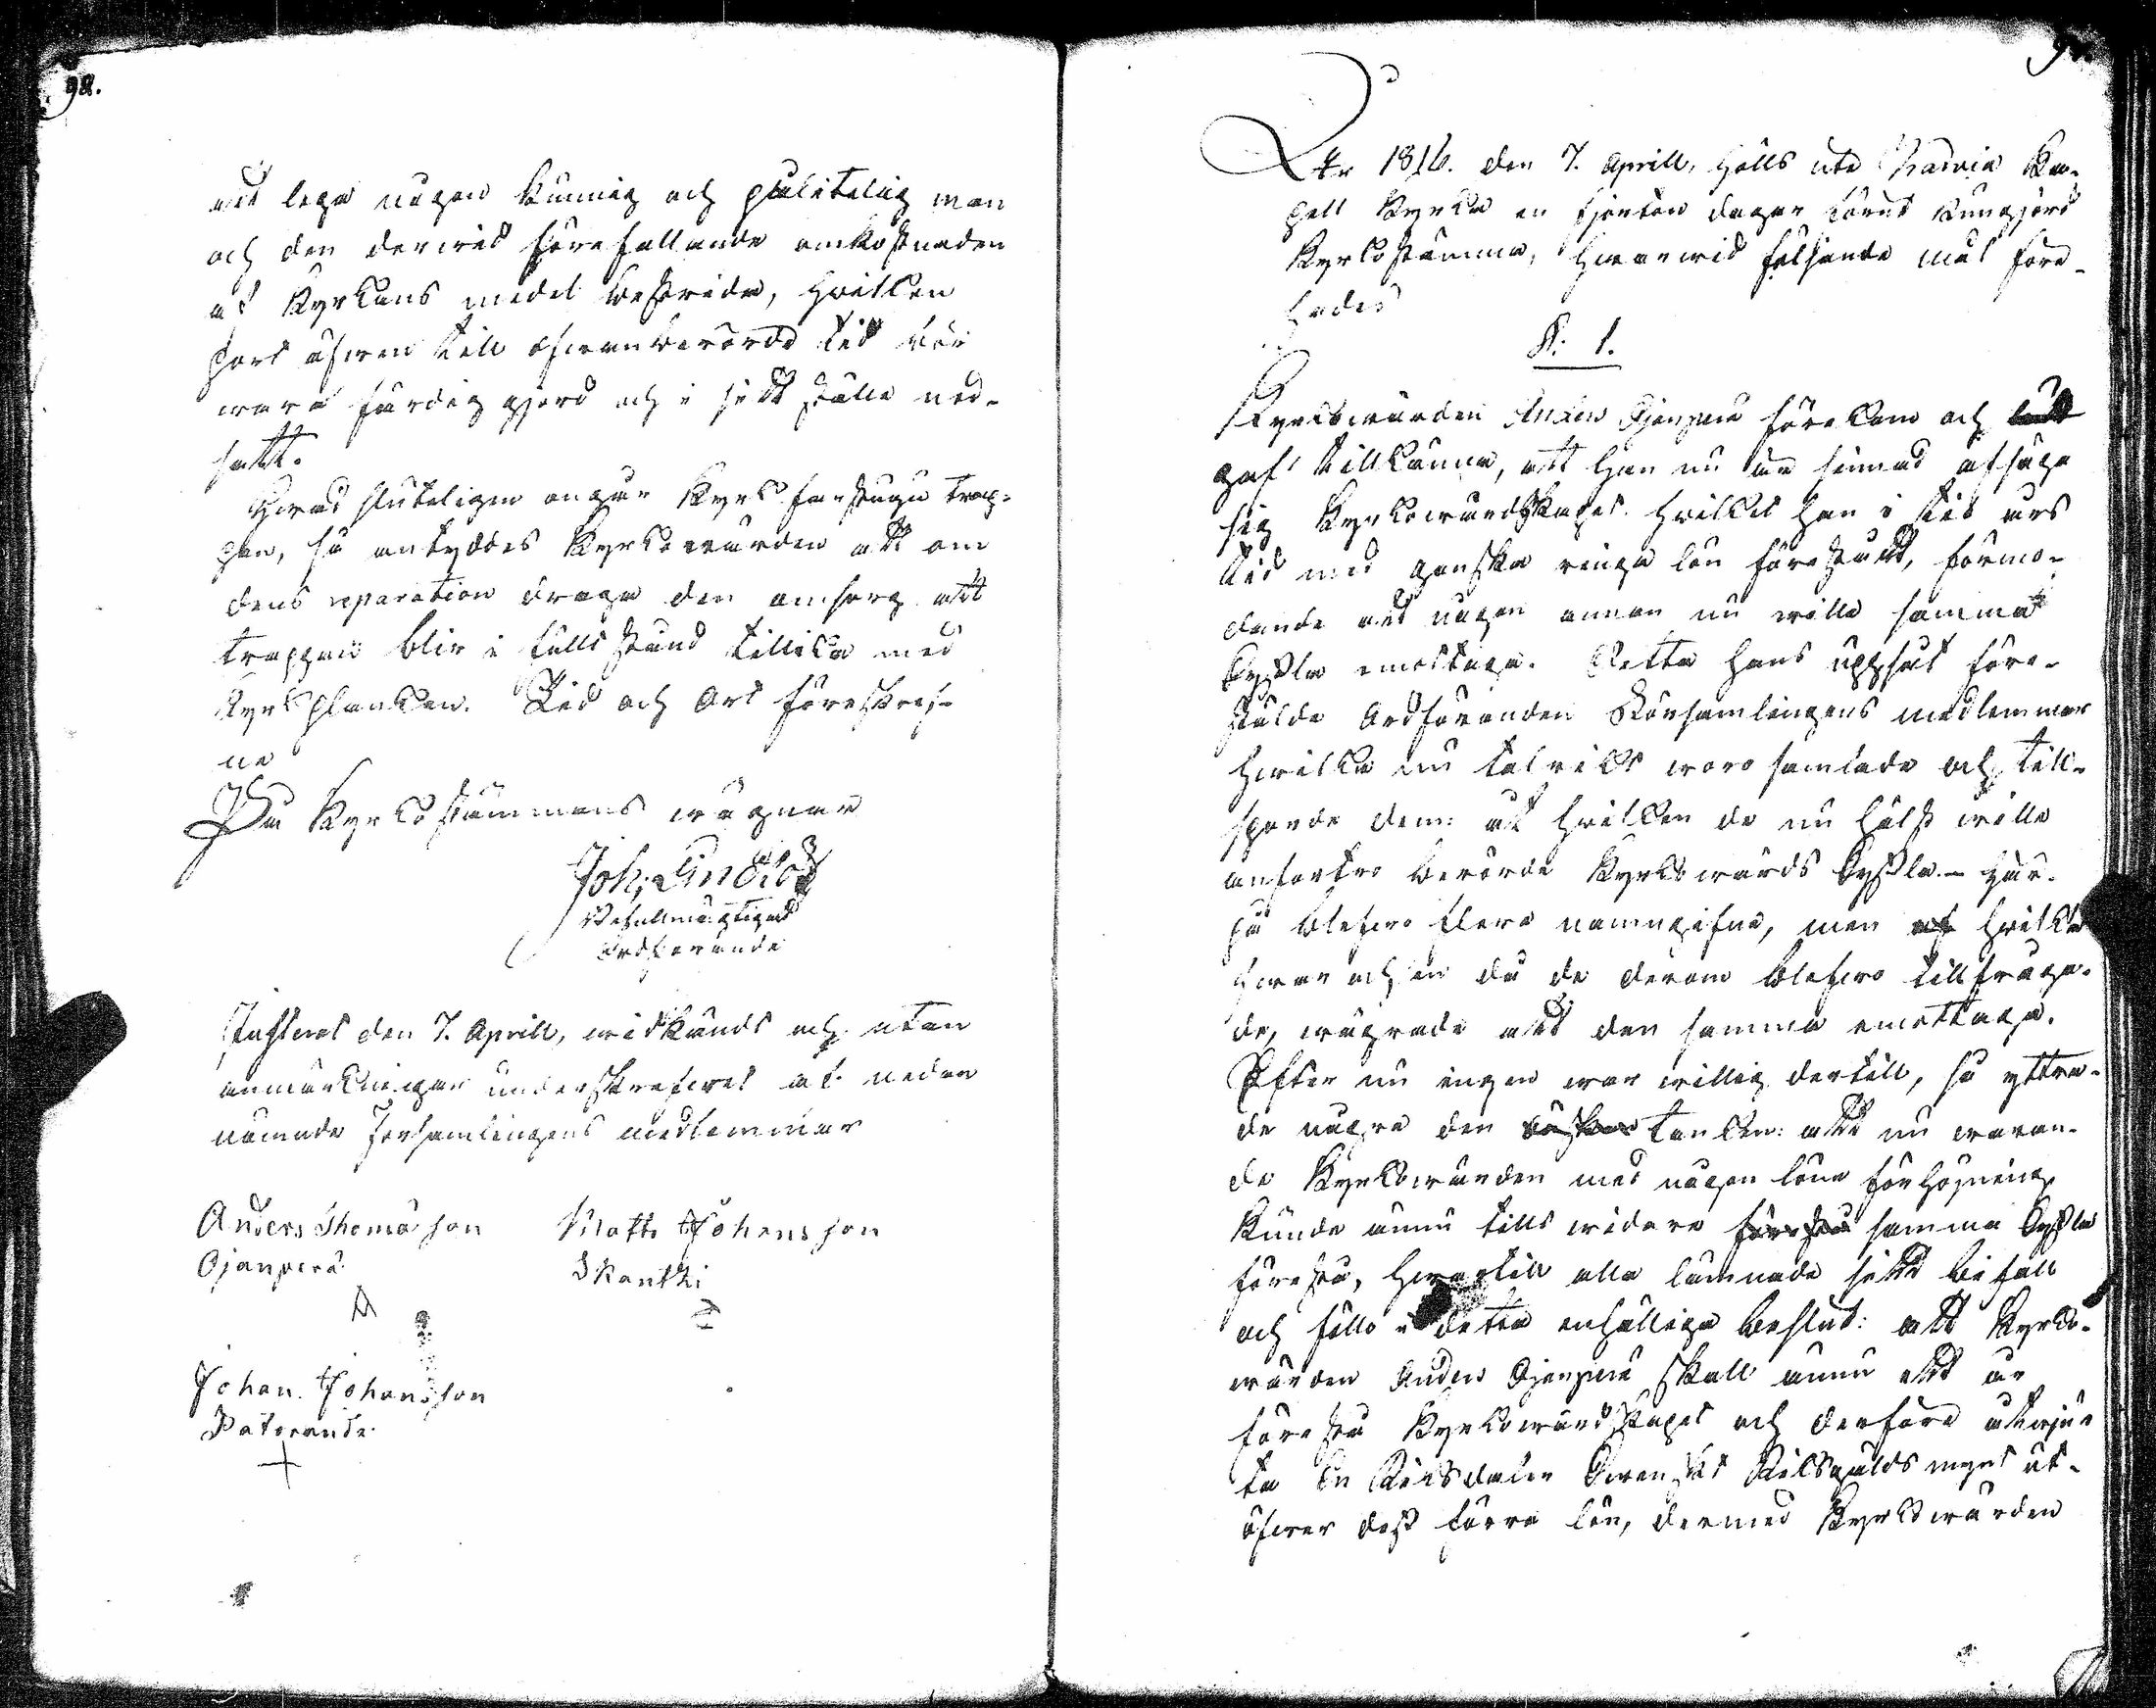 98.
att lega någon kunnig och pålitelig man
och den derwid förefallande omkostnaden
af Kyrkans medel bestrida, hvilken
port äfwen till ofwanberörde tid bör
wara färdig gjord och i sitt ställe ned-
satt.
Hwad sluteligen angår Kyrk farstugu trap-
pan, så antyddes Kyrkowärden att om
dens reparation draga den omsorg att
trappan blir i fullt stånd tillika med
Kyrkplanken. Tid och Ort föreskrif-
ne
På Kyrkostämmans wägnar
Joh. Lindlöf
Befullmägtigad
Ordförande
Justerat den 7. Aprill, widkändt och utan
anmärkningar underskrefwet af nedan
nämnde Församlingens medlemmar
Anders Thomasson Matts Johansson
Ojanperä Skanthi
Johan Johansson
Patorante
År 1816. den 7. Aprill, hölls uti Karvia Ka-
pell Kyrka en fjorton dagar förut kungjord
Kyrkostämma, hwarwid följande mål före-
hades
§. 1.
Kyrkowärden Anders Ojanperä förekom och
gaf tillkänna, att han nu är sinnad afsäga
sig Kyrkowärdskapet hvilket han i tid års
tid med ganska ringa lön förestådt, förmo-
dande att någon annan nu wille samma
Syssla emottaga. Detta hans uppsåt före-
stälde Ordföranden Församlingens medlemmar
hwilka nu talrikt woro samlade och till-
sporde dem: åt hvilken de nu hälst wille
anförtro berörde Kyrkowärds Syssla. – Här-
på blefwo flera namngifna, men af hvilka
hwar och en då de derom blefwo tillfråga-
de, wägrade att den samma emottaga.
Efter nu ingen war willig dertill, så yttra-
de några den tanken: att nu waran-
de Kyrkowärden med någon löne förhöjning,
kunde ännu tills widare förestå samma Syssla
förestå, hwartill alla lämnade sitt bifall
och föllo i detta enhälliga beslut: att Kyrko-
wärden Anders Ojanperä skall ännu ett år
förestå Kyrkowärdskapet och derföre åtnju-
ta En Riksdaler Swenskt Riksgälds mynt ut-
öfwer dess förra lön, dermed Kyrkowärden